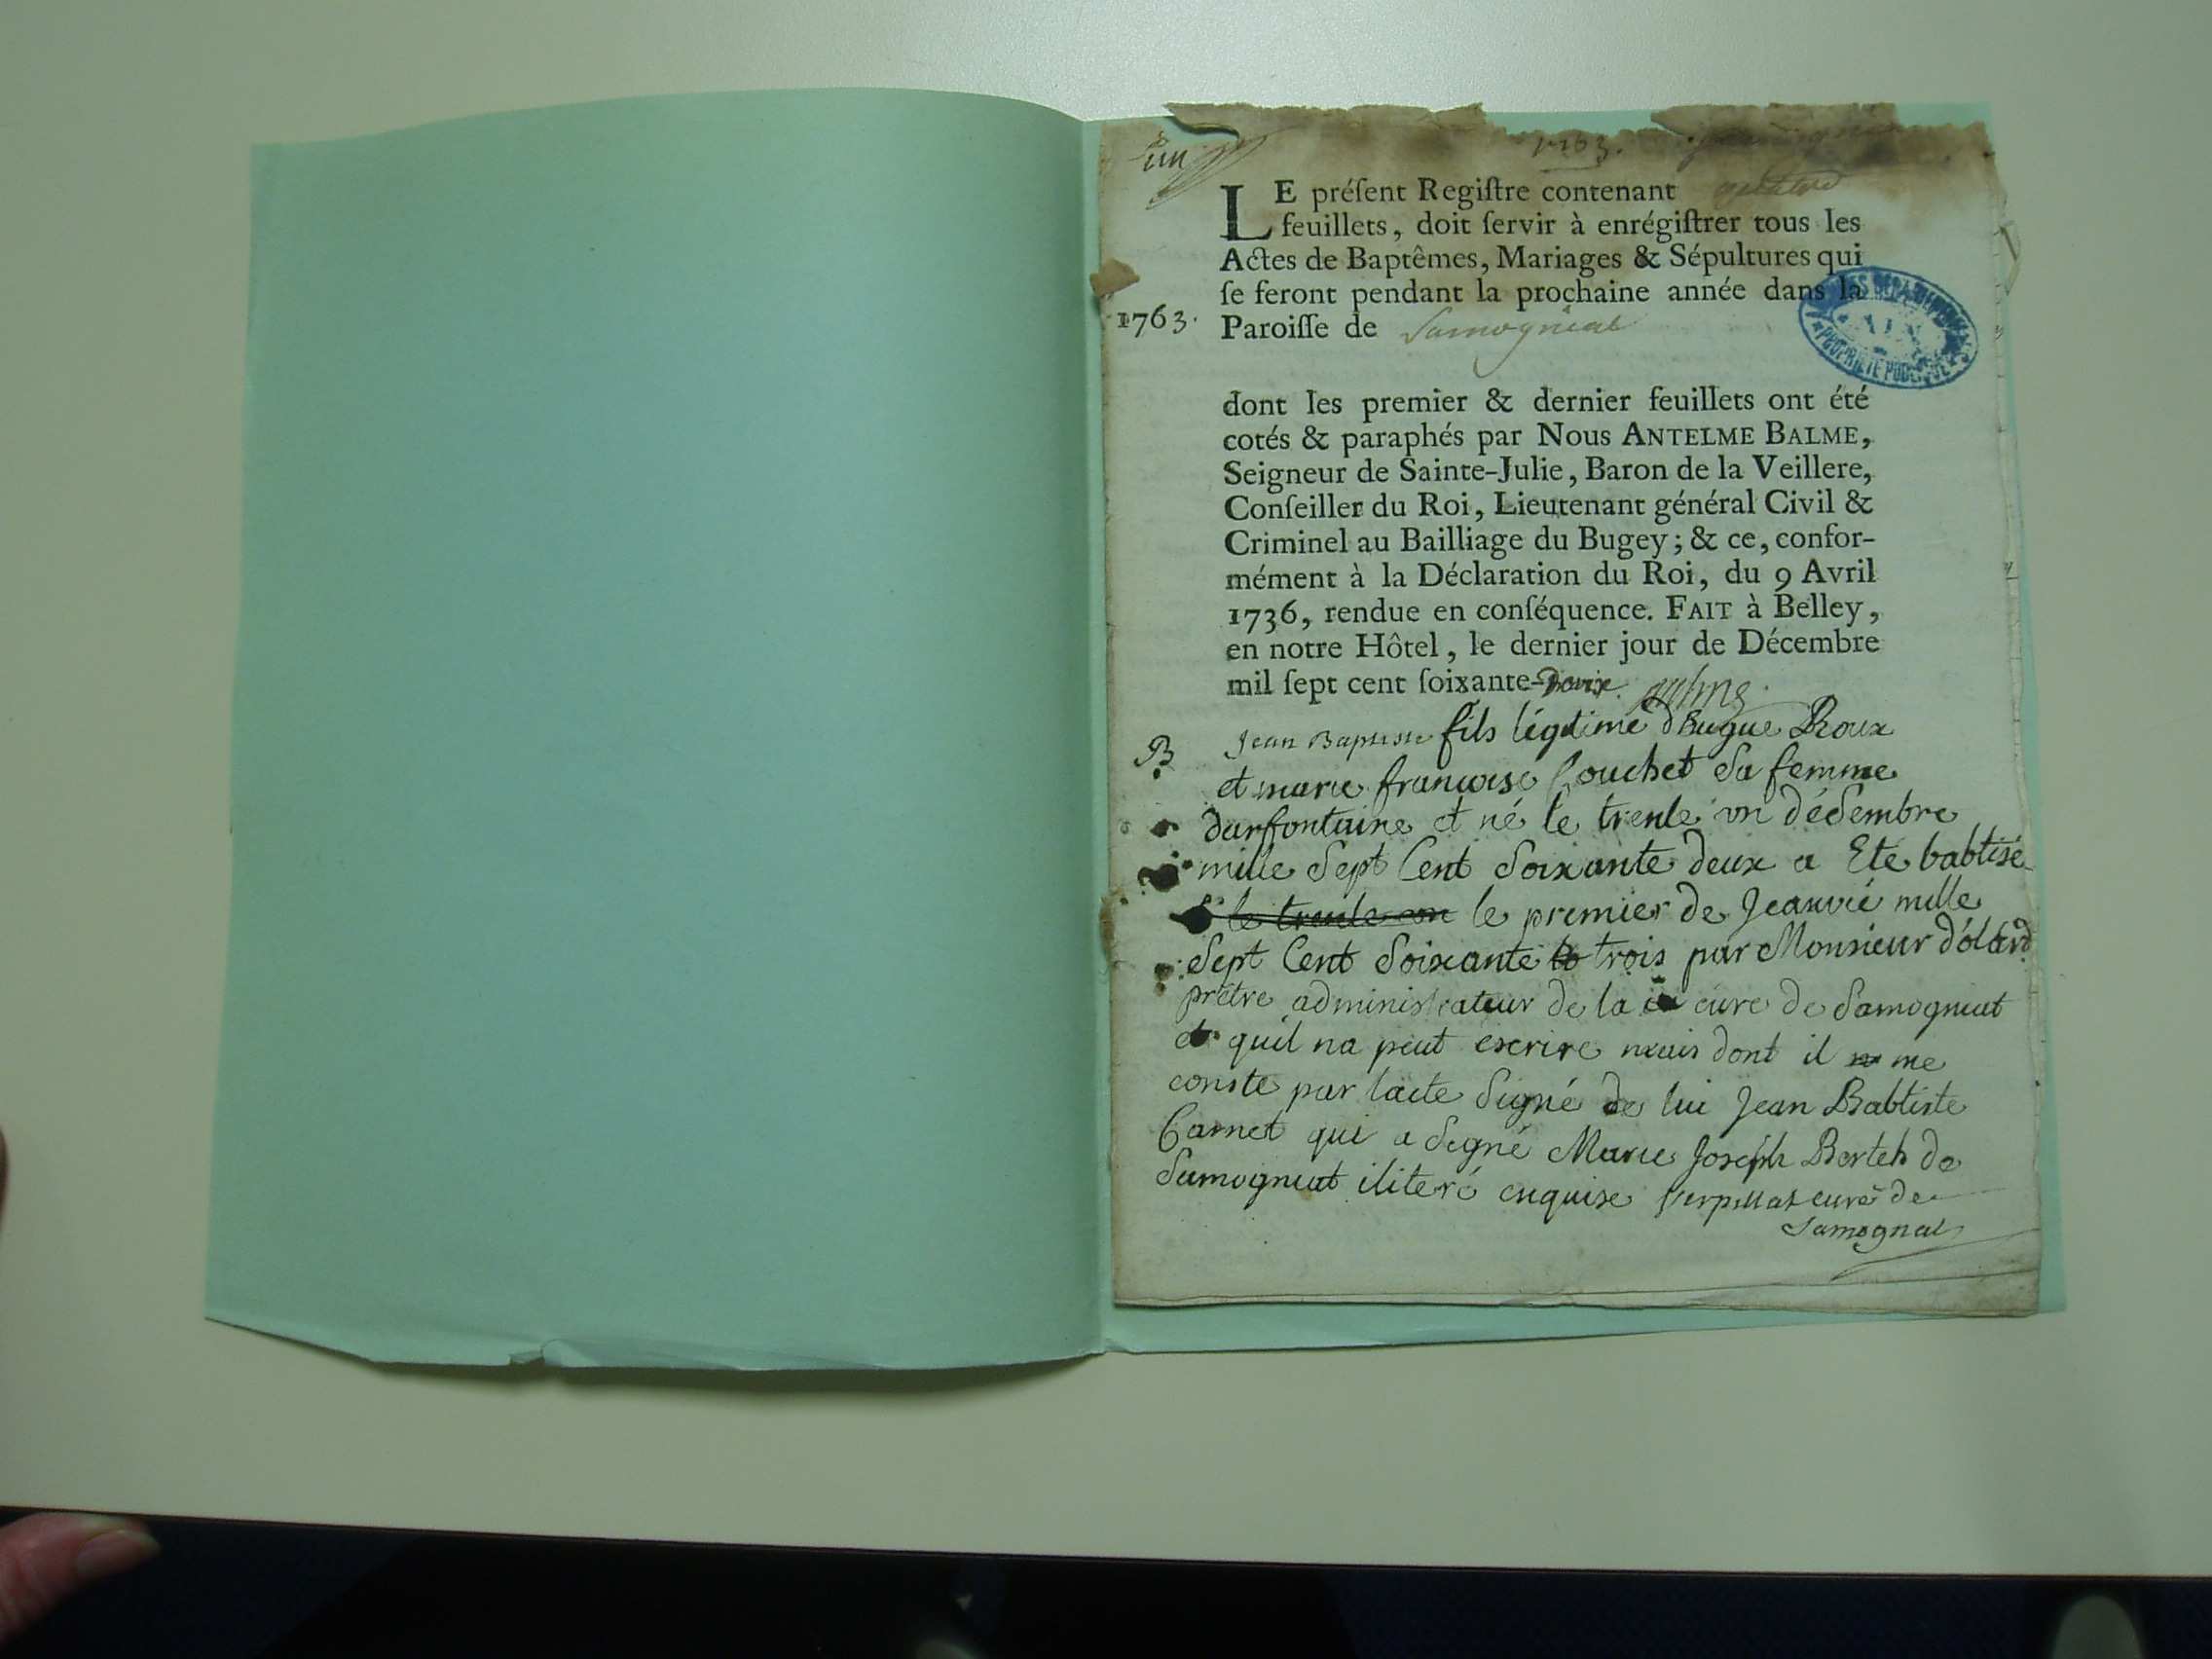 un
1763.
LE préſent Regiſtre contenant
feuillets, doit ſervir à enrégiſtrer tous les
Actes de Baptêmes, Mariages & Sépultures qui
ſe feront pendant la prochaine année dans la
1763. Paroiſſe de Samogniat
PROPRIÉTÉ PUBLIQUE
dont les premier & dernier feuillets ont été
cotés & paraphés par Nous ANTELME BALME,
Seigneur de Sainte-Julie, Baron de la Veillere,
Conſeiller du Roi, Lieutenant général Civil &
Criminel au Bailliage du Bugey; & ce, confor-
mément à la Déclaration du Roi, du 9 Avril
1736, rendue en conſéquence. FAIT à Belley,
en notre Hôtel, le dernier jour de Décembre
mil ſept cent ſoixante-
B Jean Baptiste fils légitime d'hugue Roux
et marie francoise Couchet Sa femme
darfontaine et né le trente un déSembre
mille Sept Cent Soixante deux a Eté babtisé
le trente un le premier de Jeanvié mille
Sept Cent Soixante trois par Monsieur
prètre administrateur de la cure de Samogniat
quil na peut escrire mais dont il me
conste par lacte Signé de lui Jean Babtiste
Carnet qui a Signé Marie Joseph Berteh de
Samogniat iliteré enquise Verpillat curé de
Samognat